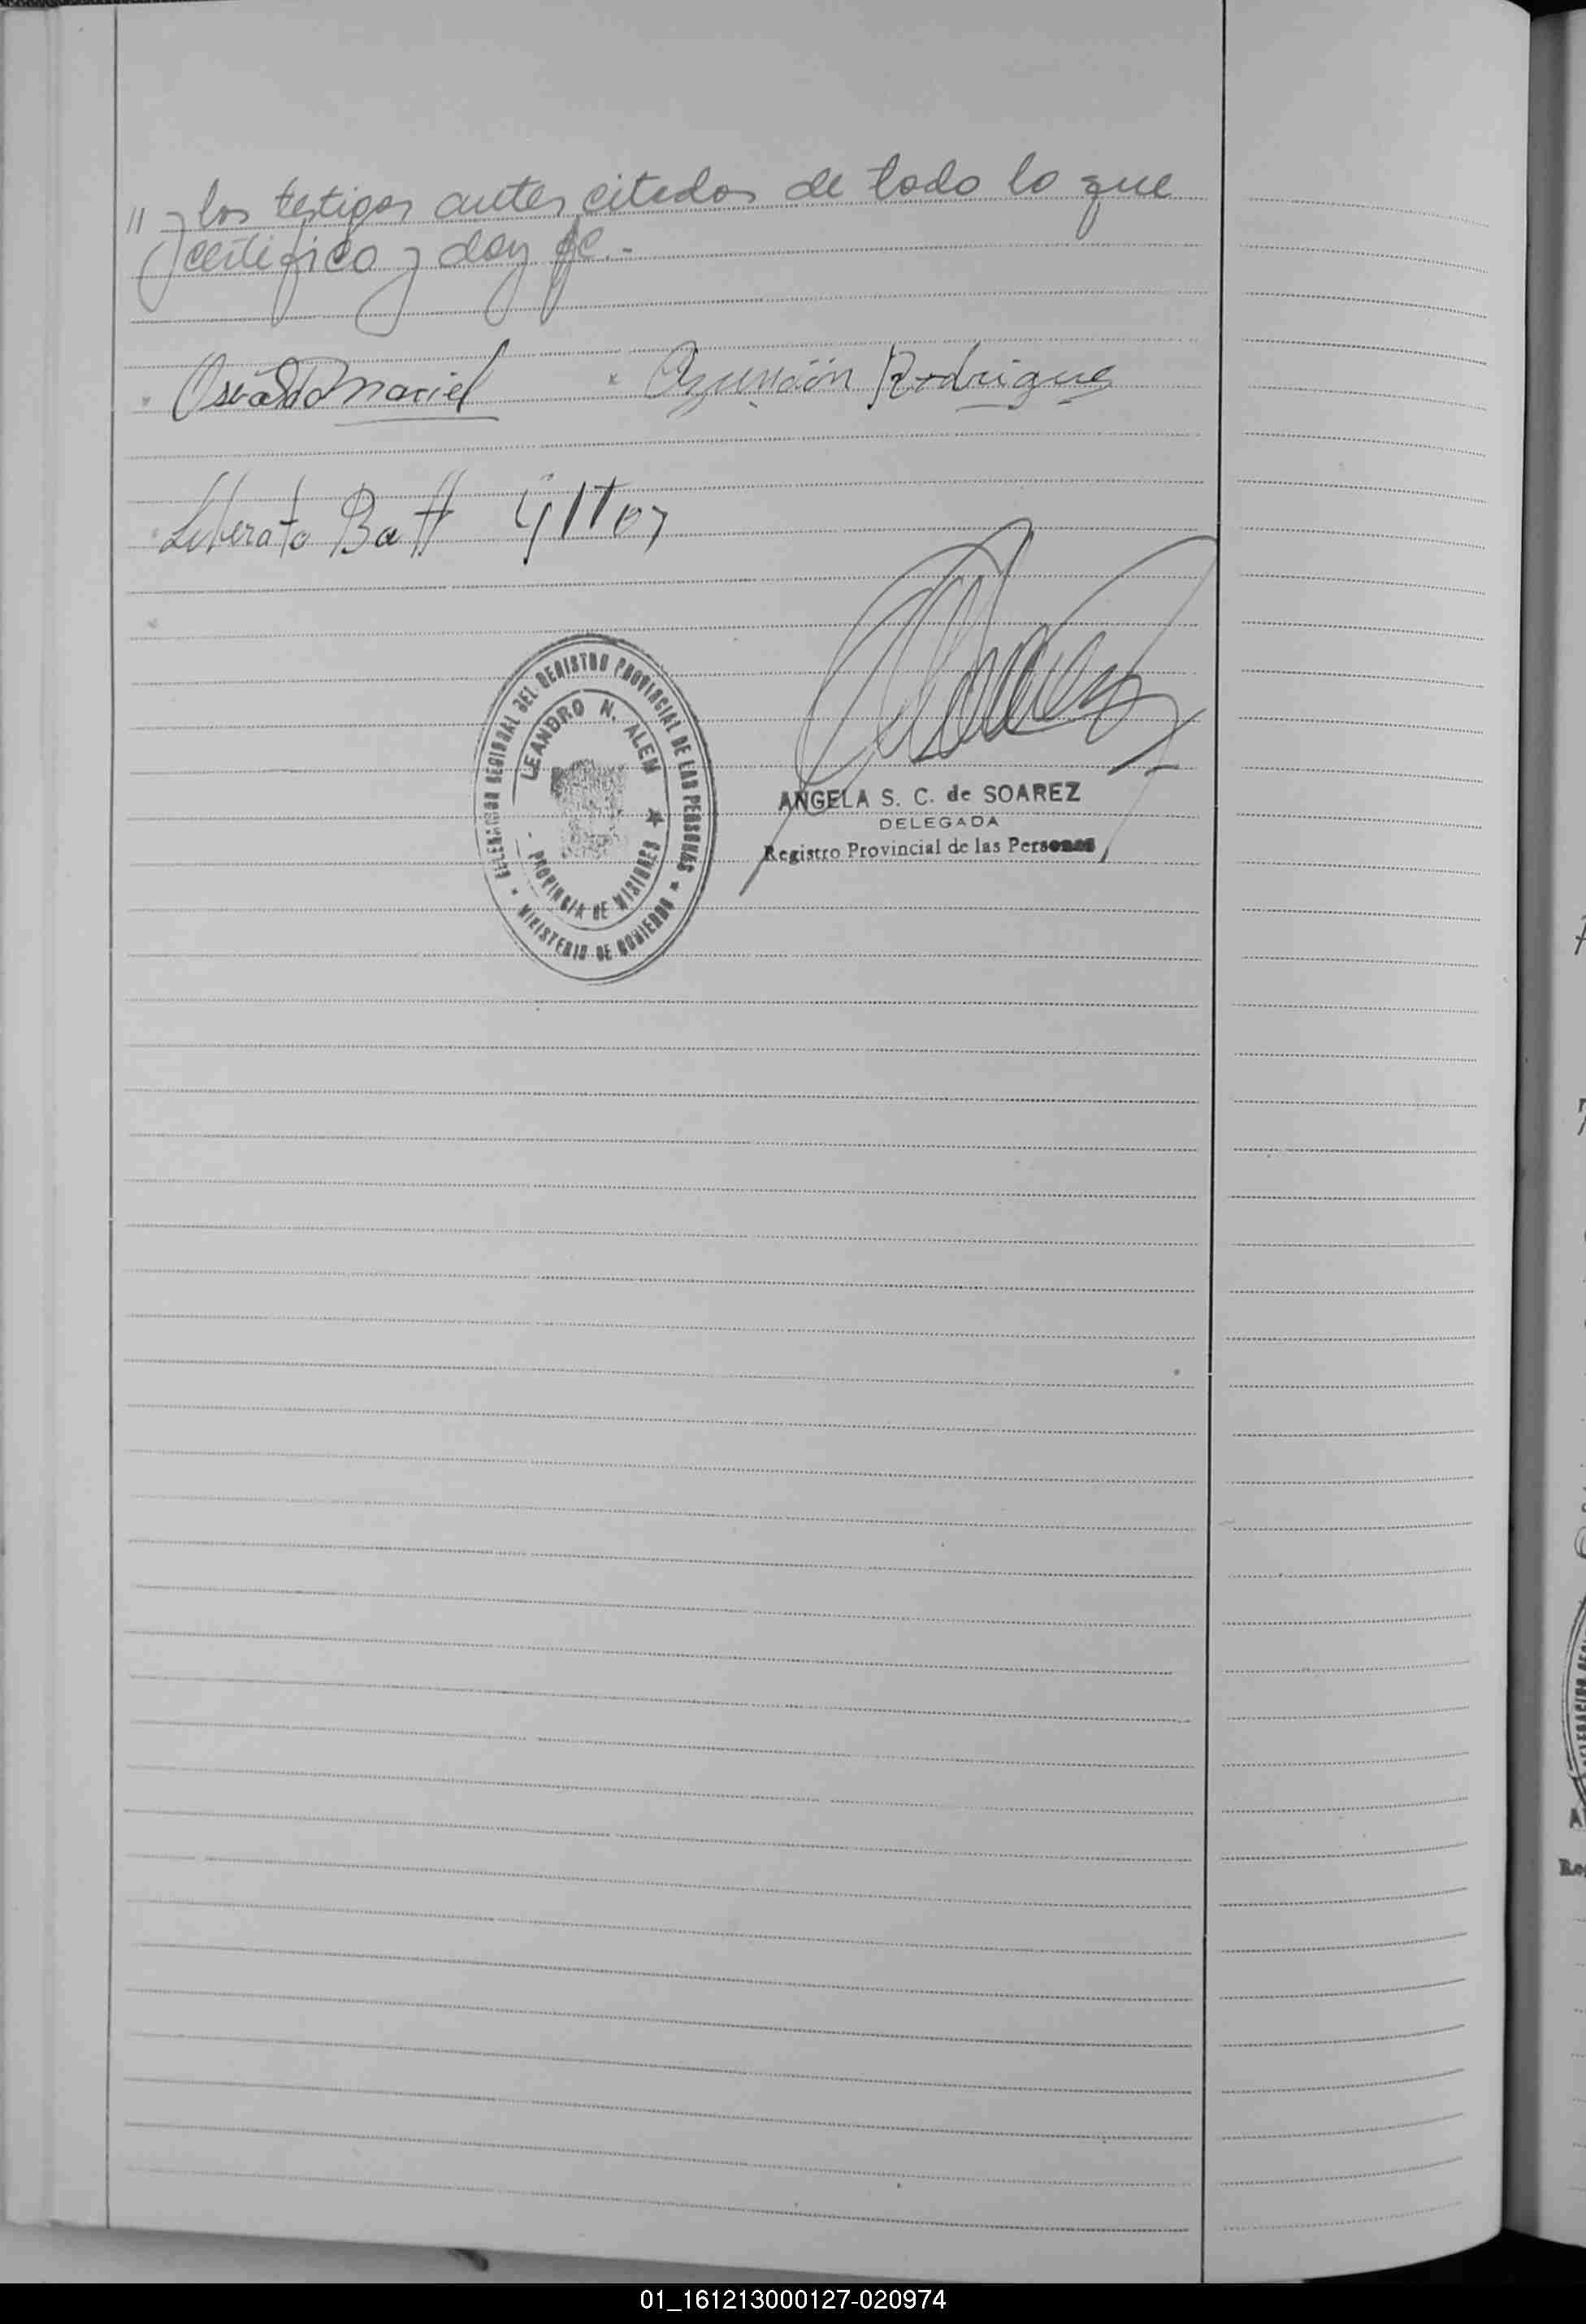 " y los testigos antes citados de todo lo que
certifico y doy fe.-
Osvaldo Maciel
Asunción Rodrigues
Liberato Batt
DELEGACION REGIONAL DEL REGISTRO PROVINCIAL DE LAS PERSONAS
LEANDRO N. ALEM
PROVINCIA DE MISIONES
MINISTERIO DE GOBIERNO
ANGELA S. C. de SOAREZ
DELEGADA
Registro Provincial de las Personas
01_161213000127-020974